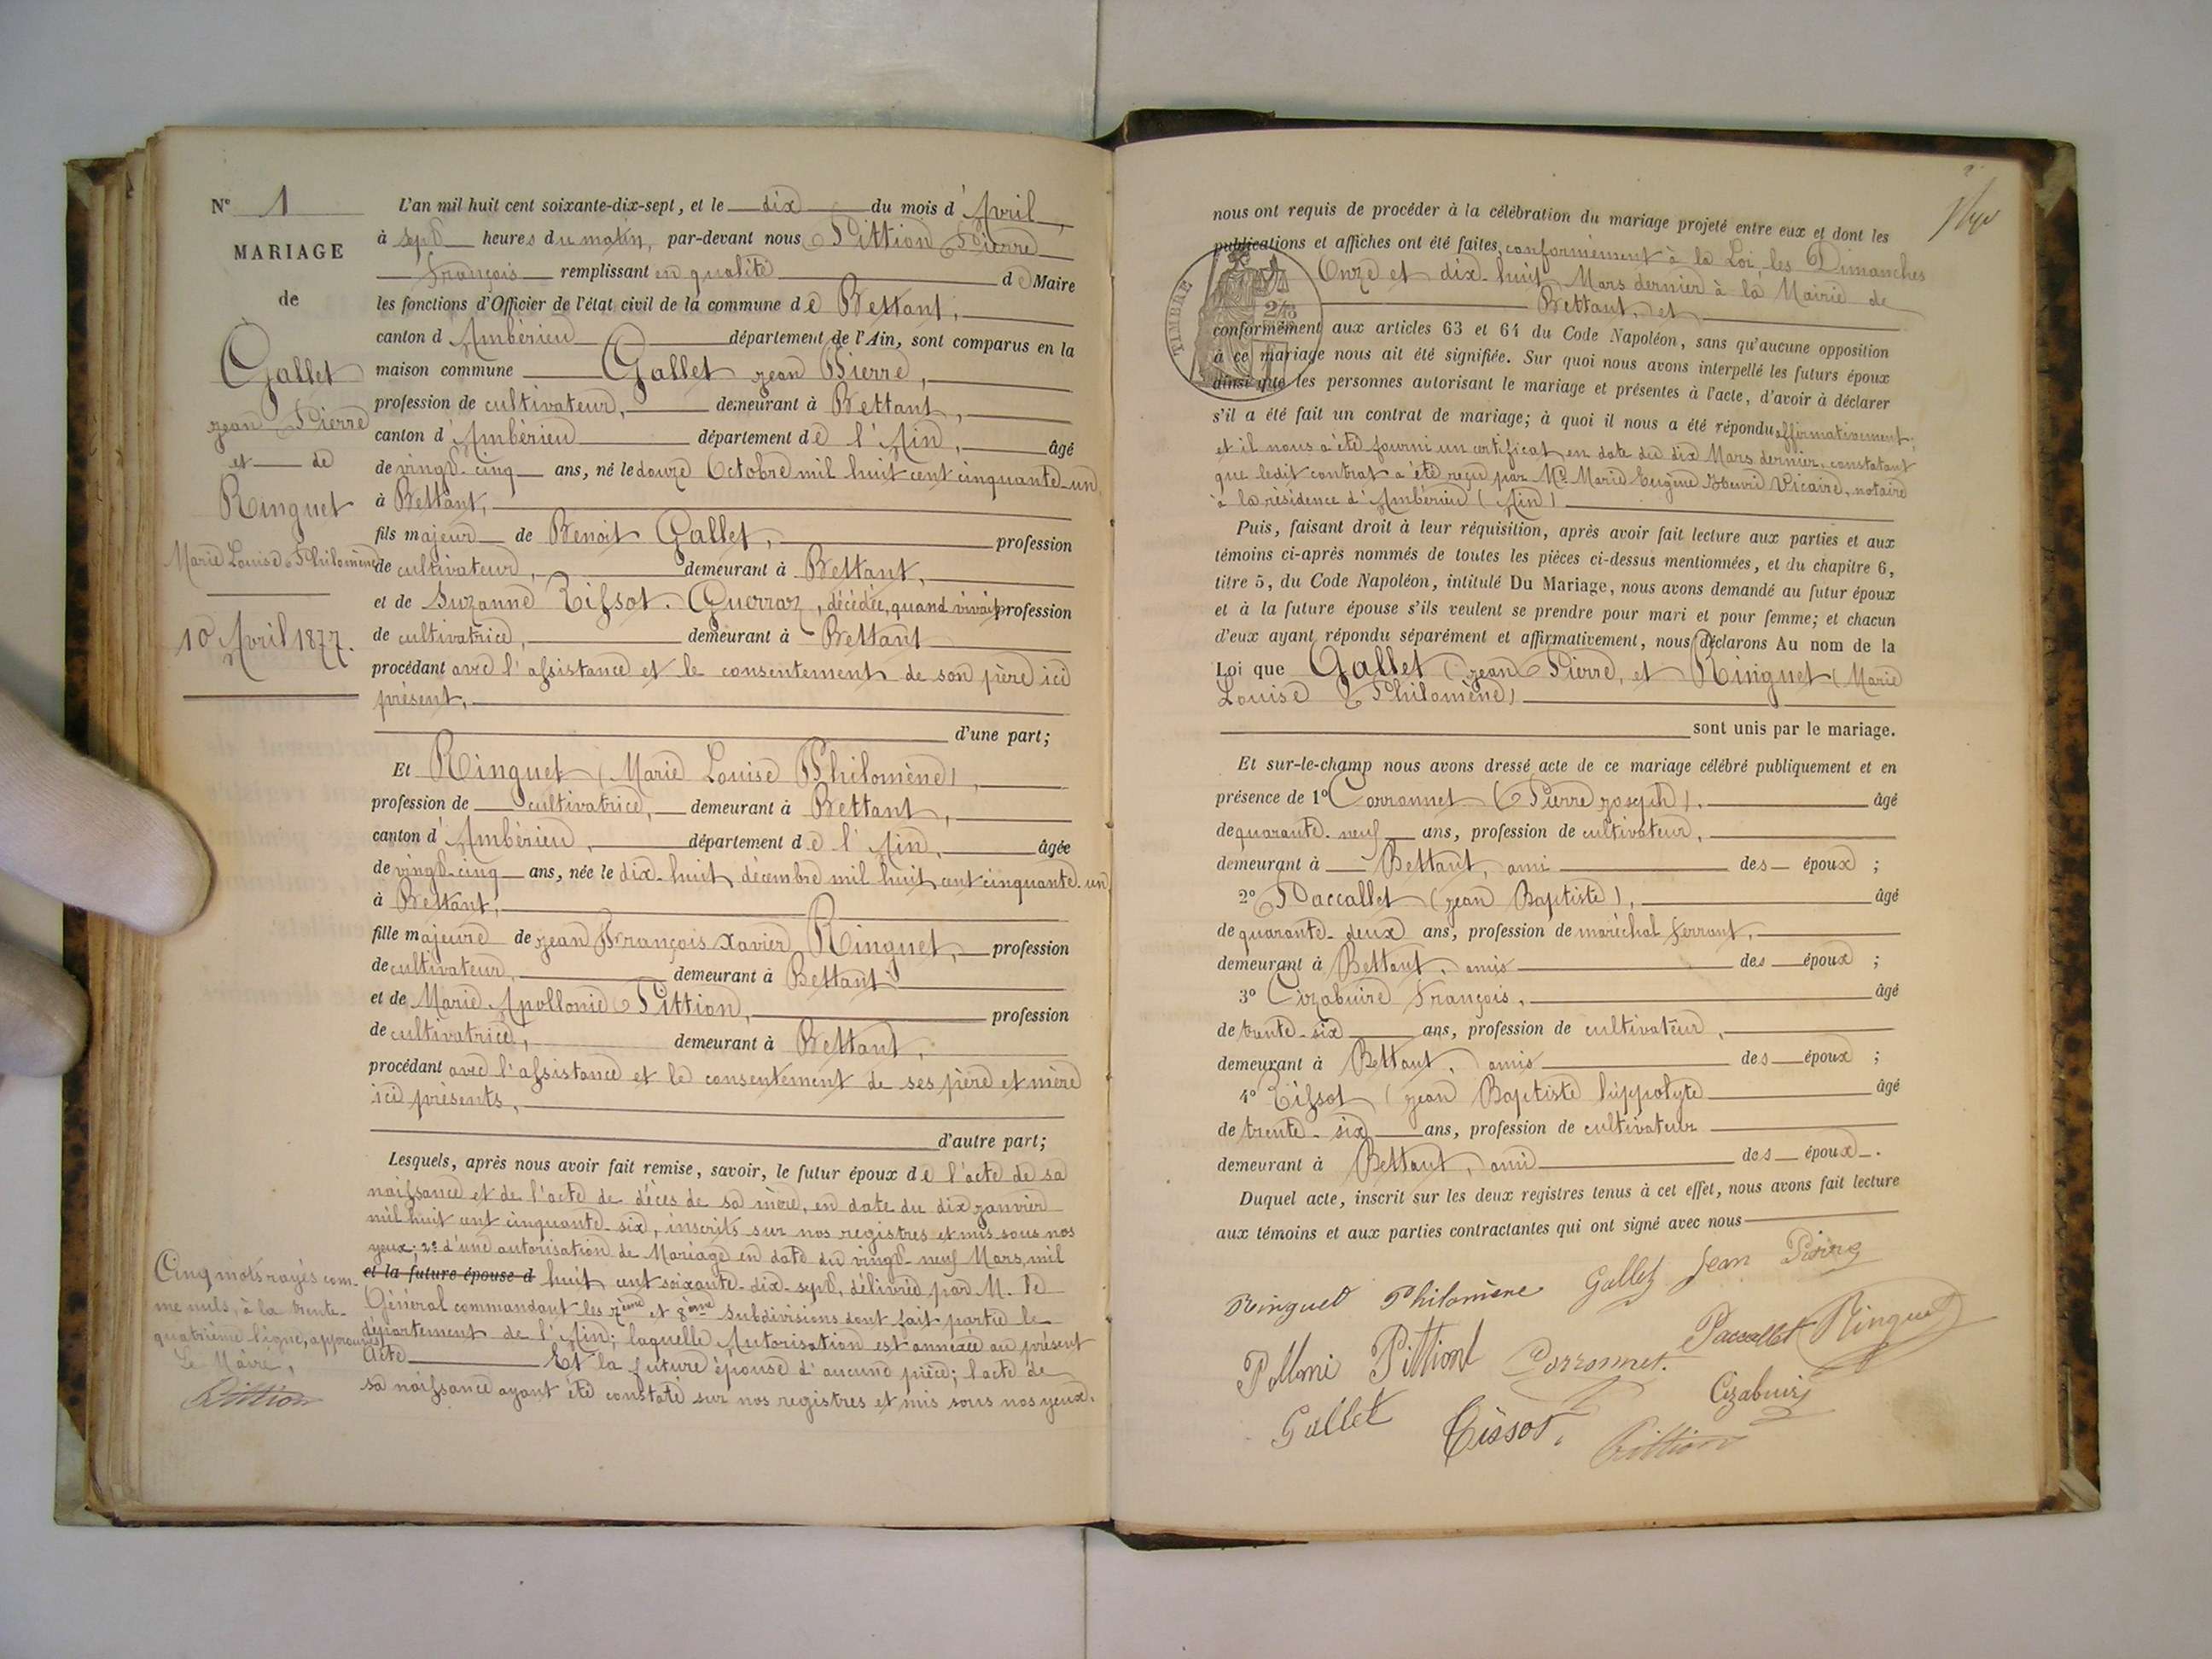 N° 1
MARIAGE
de
Gallet
jean Pierre
et de
Ringuet
Marie Louise Philomène
10 Avril 1877.
L'an mil huit cent soixante-dix-sept, et le dix du mois d'Avril,
à sept heures du matin, par-devant nous Pittion Pierre
François remplissant en qualité de Maire
les fonctions d'Officier de l'état civil de la commune de Bettant,
canton d'Ambérieu département de l'Ain, sont comparus en la
maison commune Gallet jean Pierre,
profession de cultivateur, demeurant à Bettant,
canton d'Ambérieu département de l'Ain, âgé
de vingt-cinq ans, né le douze Octobre mil huit cent cinquante-un
à Bettant,
fils majeur de Benoit Gallet, profession
de cultivateur, demeurant à Bettant,
et de Suzanne Tissot-Guerraz, décédée, quand vivait profession
de cultivatrice, demeurant à Bettant
procédant avec l'assistance et le consentement de son père ici
présent,
d'une part;
Et Ringuet (Marie Louise Philomène),
profession de cultivatrice, demeurant à Bettant,
canton d'Ambérieu, département de l'Ain, âgée
de vingt-cinq ans, née le dix-huit décembre mil huit cent cinquante-un
à Bettant,
fille majeure de jean François Xavier Ringuet, profession
de cultivateur, demeurant à Bettant
et de Marie Apollonie Pittion, profession
de cultivatrice, demeurant à Bettant,
procédant avec l'assistance et le consentement de ses père et mère
ici présents,
d'autre part;
Lesquels, après nous avoir fait remise, savoir, le futur époux de l'acte de sa
naissance et de l'acte de décès de sa mère, en date du dix janvier
mil huit cent cinquante-six, inscrits sur nos registres et mis sous nos
yeux; 2° d'une autorisation de Mariage en date du vingt-neuf Mars, mil
et la future épouse d huit cent soixante-dix-sept, délivrée par M. le
Général commandant les 7ème et 8ème subdivisions dont fait partie le
département de l'Ain; laquelle Autorisation est annexée au présent
Acte Et la future épouse d'aucune pièce; l'acte de
sa naissance ayant été constaté sur nos registres et mis sous nos yeux.
Cinq mots rayés com-
me nuls, à la trente-
quatrième ligne, approuvés
Le Maire,
Pittion
nous ont requis de procéder à la célébration du mariage projeté entre eux et dont les
publications et affiches ont été faites, conformément à la Loi, les Dimanches
Onze et dix-huit Mars dernier à la Mairie de
Bettant, et
TIMBRE
conformément aux articles 63 et 64 du Code Napoléon, sans qu'aucune opposition
à ce mariage nous ait été signifiée. Sur quoi nous avons interpellé les futurs époux
ainsi que les personnes autorisant le mariage et présentes à l'acte, d'avoir à déclarer
s'il a été fait un contrat de mariage; à quoi il nous a été répondu affirmativement,
et il nous a été fourni un certificat en date du dix Mars dernier, constatant
que ledit contrat a été reçu par Me Marie Eugène Henri Vicaire, notaire
à la résidence d'Ambérieu (Ain)
Puis, faisant droit à leur réquisition, après avoir fait lecture aux parties et aux
témoins ci-après nommés de toutes les pièces ci-dessus mentionnées, et du chapitre 6,
titre 5, du Code Napoléon, intitulé Du Mariage, nous avons demandé au futur époux
et à la future épouse s'ils veulent se prendre pour mari et pour femme; et chacun
d'eux ayant répondu séparément et affirmativement, nous déclarons Au nom de la
Loi que Gallet (jean Pierre, et Ringuet (Marie
Louise Philomène)
sont unis par le mariage.
Et sur-le-champ nous avons dressé acte de ce mariage célébré publiquement et en
présence de 1° Corronnet (Pierre joseph), âgé
de quarante-neuf ans, profession de cultivateur,
demeurant à Bettant, ami des époux ;
2° Paccallet (jean Baptiste), âgé
de quarante-deux ans, profession de maréchal ferrant,
demeurant à Bettant, amis des époux ;
3° Cizabuire François, âgé
de trente-six ans, profession de cultivateur,
demeurant à Bettant, amis des époux ;
4° Tissot (jean Baptiste hippolyte âgé
de trente-six ans, profession de cultivateur
demeurant à Bettant, ami des époux.
Duquel acte, inscrit sur les deux registres tenus à cet effet, nous avons fait lecture
aux témoins et aux parties contractantes qui ont signé avec nous
Ringuet Philomène Gallet Jean Pierre
Polloni Pittiont Corronnet. Paccallet Ringuet
Gallet Tissot. Cizabuire
Pittion